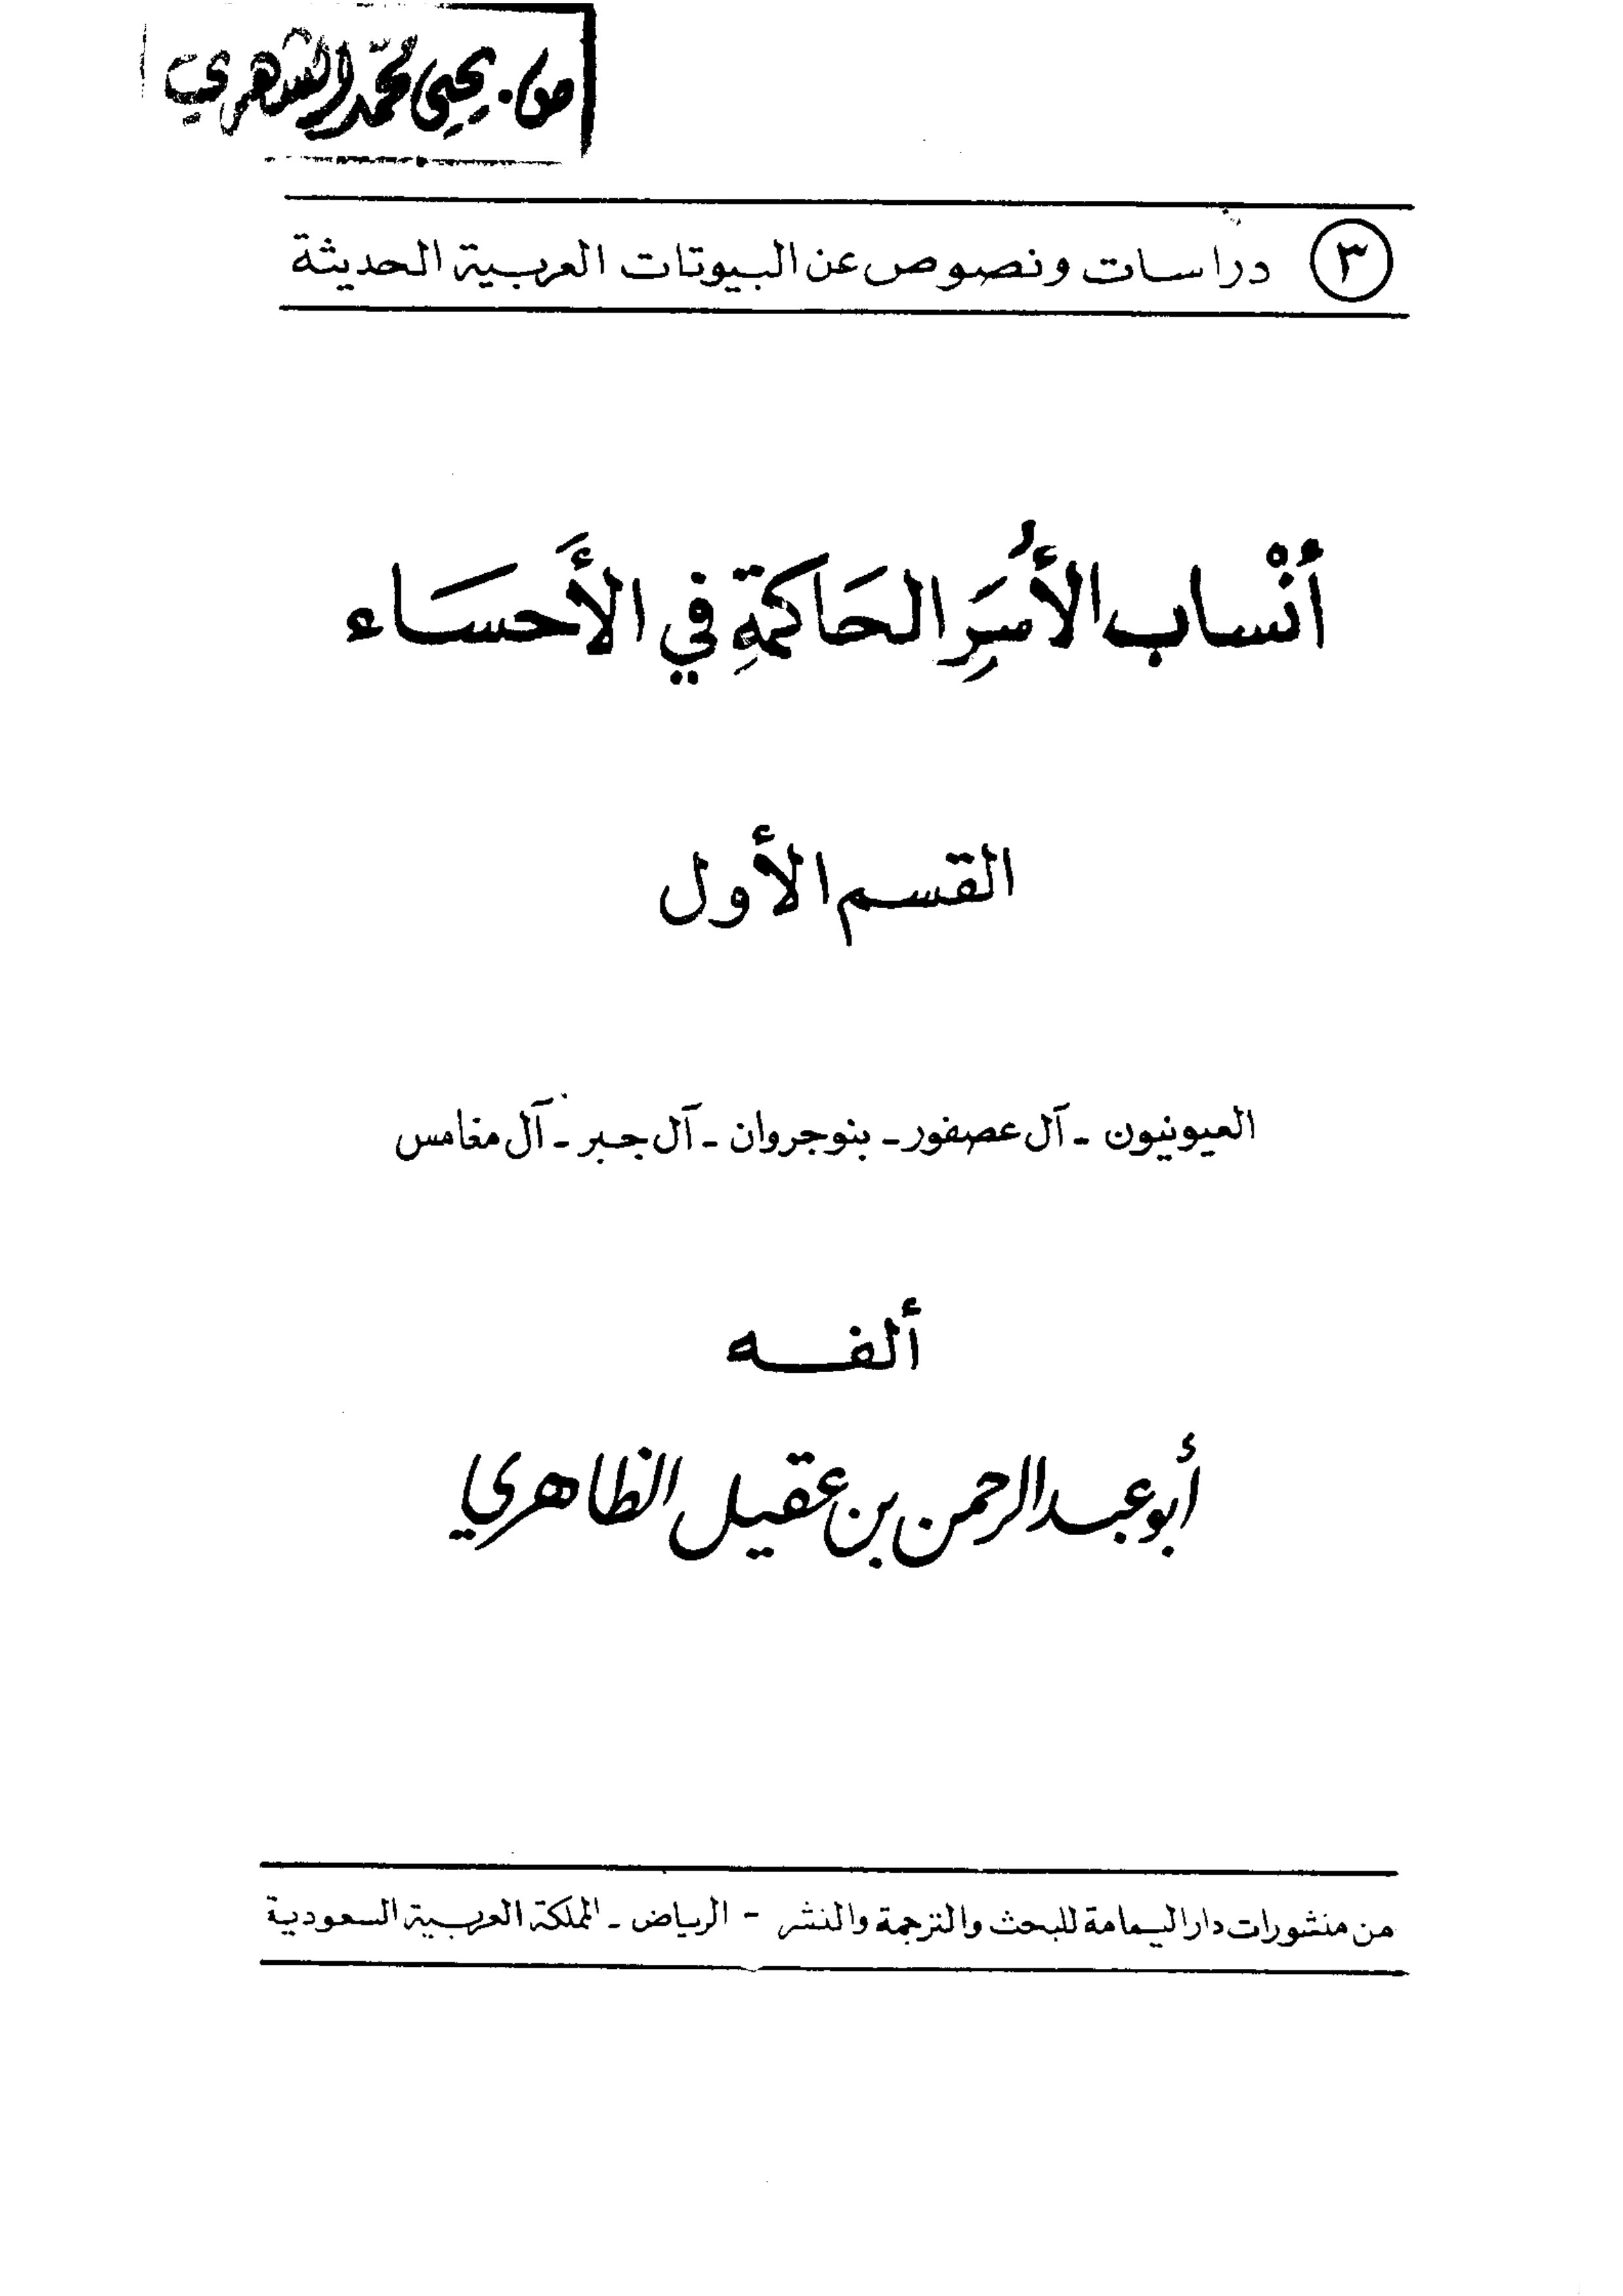 ص. يحيى محمد الشهري
٣ دراسات ونصوص عن البيوتات العربية الحديثة
أنْساب الأُسَرِ الحَاكمةِ في الأَحسَاء
القسم الأول
العيونيون - آل عصفور - بنو جروان - آل جبر - آل مغامس
ألفـــه
أبو عبد الرحمن بن عقيل الظاهري
من منشورات دار اليمامة للبحث والترجمة والنشر - الرياض - المملكة العربية السعودية